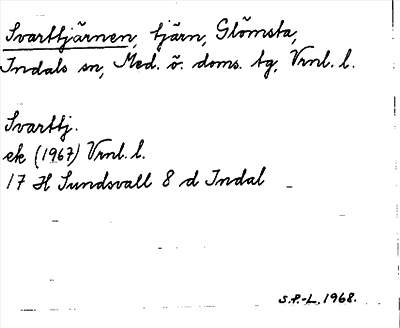 Svarttjärnen, tjärn, Glömsta,
Indals sn, Med. ö. doms. tg, Vrnl. l.
Svarttj.
ek (1967) Vrnl. l.
17 H Sundsvall 8 d Indal
S.P.-L. 1968.